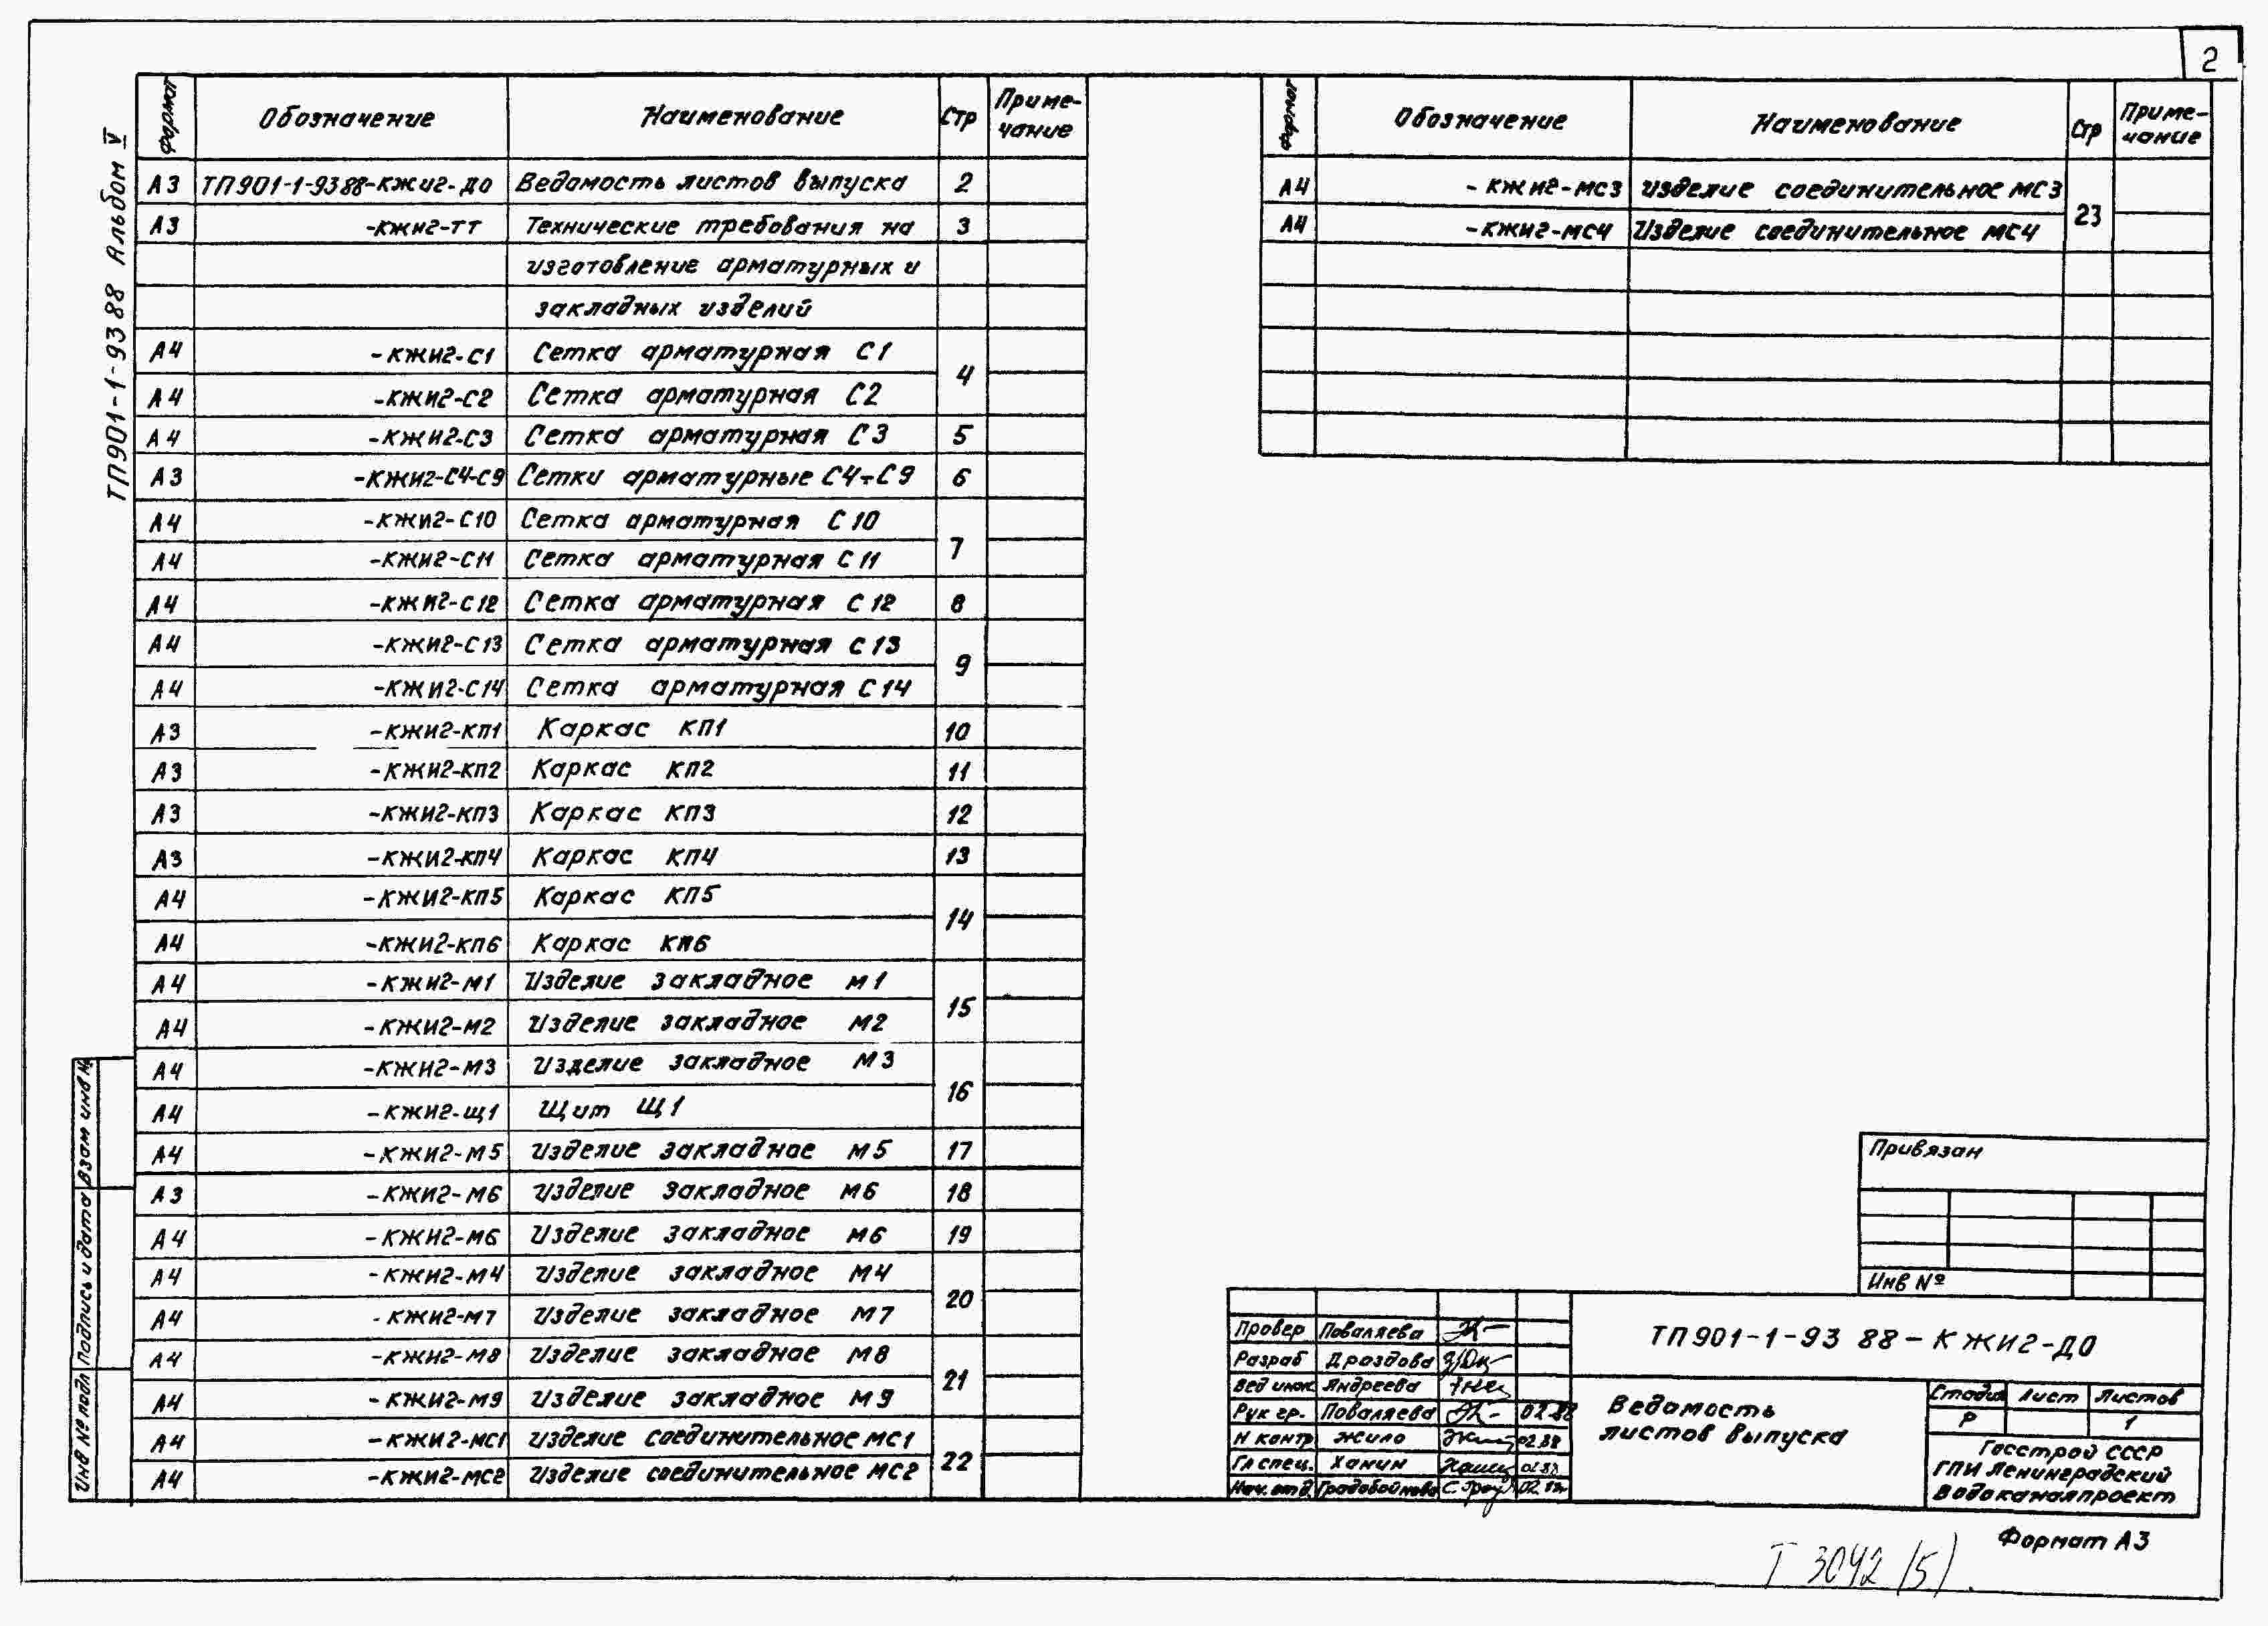 2
ТП901-1-93 88 Альбом V
Формат Обозначение Наименование Стр Приме-чание
А3 ТП901-1-93 88-КЖИ2-ДО Ведомость листов выпуска 2
А3 -КЖИ2-ТТ Технические требования на 3
изготовление арматурных и
закладных изделий
А4 -КЖИ2-С1 Сетка арматурная С1
4
А4 -КЖИ2-С2 Сетка арматурная С2
А4 -КЖИ2-С3 Сетка арматурная С3 5
А3 -КЖИ2-С4-С9 Сетки арматурные С4÷С9 6
А4 -КЖИ2-С10 Сетка арматурная С10
7
А4 -КЖИ2-С11 Сетка арматурная С11
А4 -КЖИ2-С12 Сетка арматурная С12 8
А4 -КЖИ2-С13 Сетка арматурная С13
9
А4 -КЖИ2-С14 Сетка арматурная С14
А3 -КЖИ2-КП1 Каркас КП1 10
А3 -КЖИ2-КП2 Каркас КП2 11
А3 -КЖИ2-КП3 Каркас КП3 12
А3 -КЖИ2-КП4 Каркас КП4 13
А4 -КЖИ2-КП5 Каркас КП5
14
А4 -КЖИ2-КП6 Каркас КП6
А4 -КЖИ2-М1 Изделие закладное М1
15
А4 -КЖИ2-М2 Изделие закладное М2
А4 -КЖИ2-М3 Изделие закладное М3
16
А4 -КЖИ2-Щ1 Щит Щ1
А4 -КЖИ2-М5 Изделие закладное М5 17
А3 -КЖИ2-М6 Изделие закладное М6 18
А4 -КЖИ2-М6 Изделие закладное М6 19
А4 -КЖИ2-М4 Изделие закладное М4
20
А4 -КЖИ2-М7 Изделие закладное М7
А4 -КЖИ2-М8 Изделие закладное М8
21
А4 -КЖИ2-М9 Изделие закладное М9
А4 -КЖИ2-МС1 Изделие соединительное МС1
22
А4 -КЖИ2-МС2 Изделие соединительное МС2
Взам инв №
Подпись и дата
Инв № подл
Формат Обозначение Наименование Стр Приме-чание
А4 -КЖИ2-МС3 Изделие соединительное МС3
23
А4 -КЖИ2-МС4 Изделие соединительное МС4
Привязан
Инв №
Провер Поваляева
Разраб Дроздова
Вед инж Андреева
Рук гр. Поваляева 02.88
Н контр Жило 02.88
Гл спец. Ханин 02.88
Нач. отд. Градобойнова
ТП901-1-93 88-КЖИ2-ДО
Ведомость
листов выпуска
Стадия Лист Листов
Р 1
Госстрой СССР
ГПИ Ленинградский
Водоканалпроект
Формат А3
Т 3042 /5/.